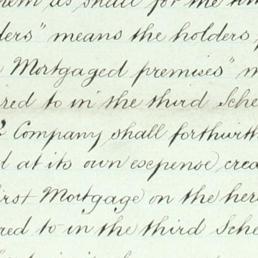 them as shall for the
ders" means the holders
Mortgaged premises"
red to in the third Sche
Company shall forthwith
d at its own expense, crea
irst Mortgage on the her
red to in the third Sche